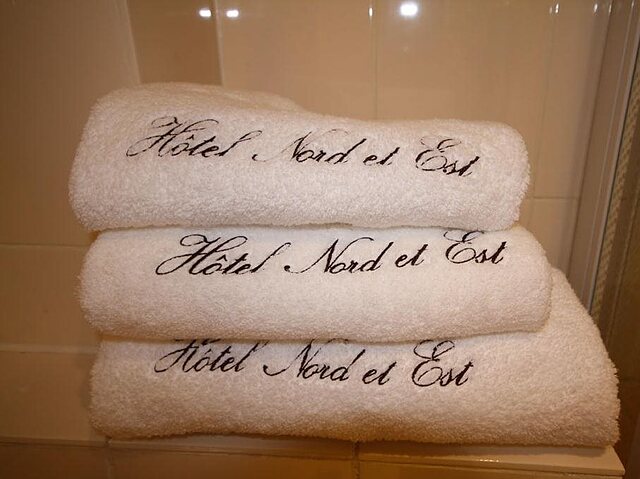 Hôtel Nord et Est
Hôtel Nord et Est
Hôtel Nord et Est